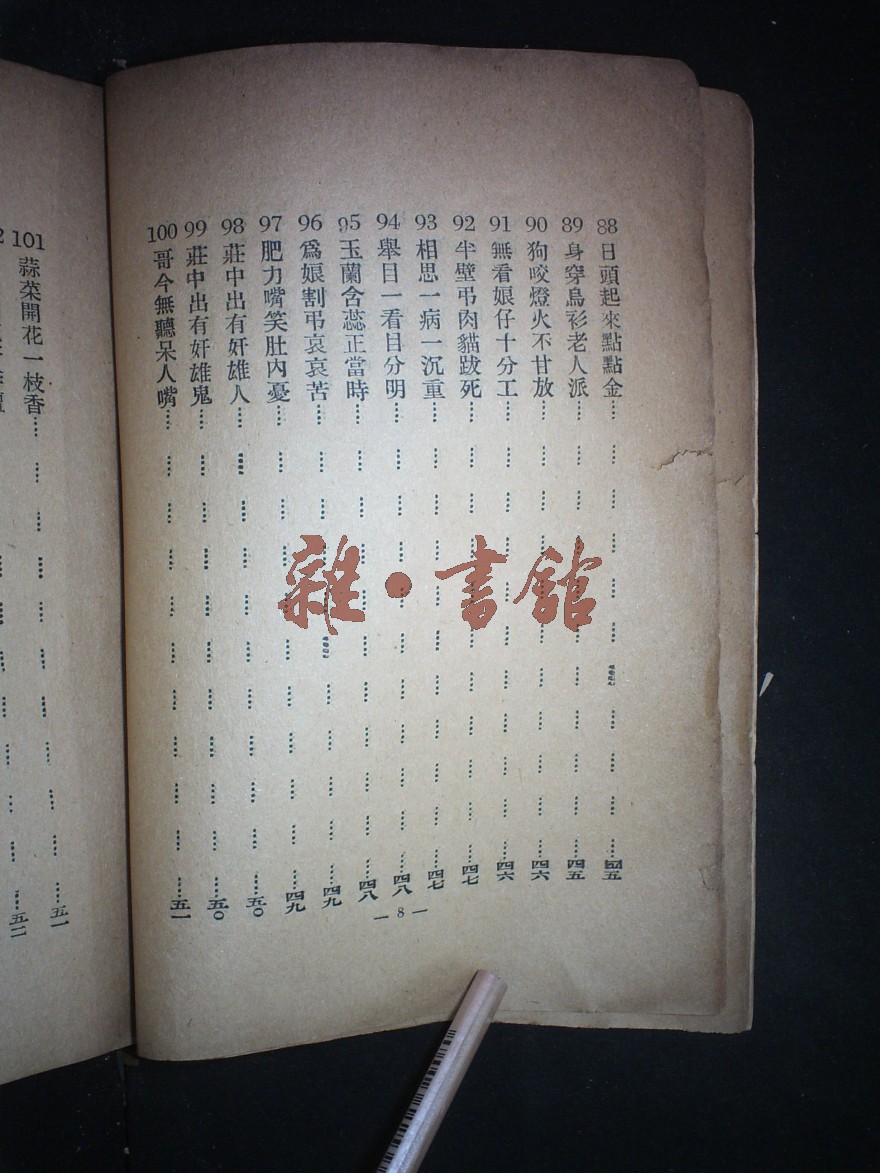 88 日頭起來點點金…… 四五
89 身穿烏衫老人派…… 四五
90 狗咬燈火不甘放…… 四六
91 無看娘仔十分工…… 四六
92 半壁弔肉貓跋死…… 四七
93 相思一病一沉重…… 四七
94 舉目一看目分明…… 四八
95 玉蘭含蕊正當時…… 四八
96 爲娘割弔哀哀苦…… 四九
97 肥力嘴笑肚內憂…… 四九
98 莊中出有奸雄人…… 五〇
99 莊中出有奸雄鬼…… 五〇
100 哥今無聽呆人嘴…… 五一
— 8 —
101 蒜菜開花一枝香…… 五一
五二
雜·書館